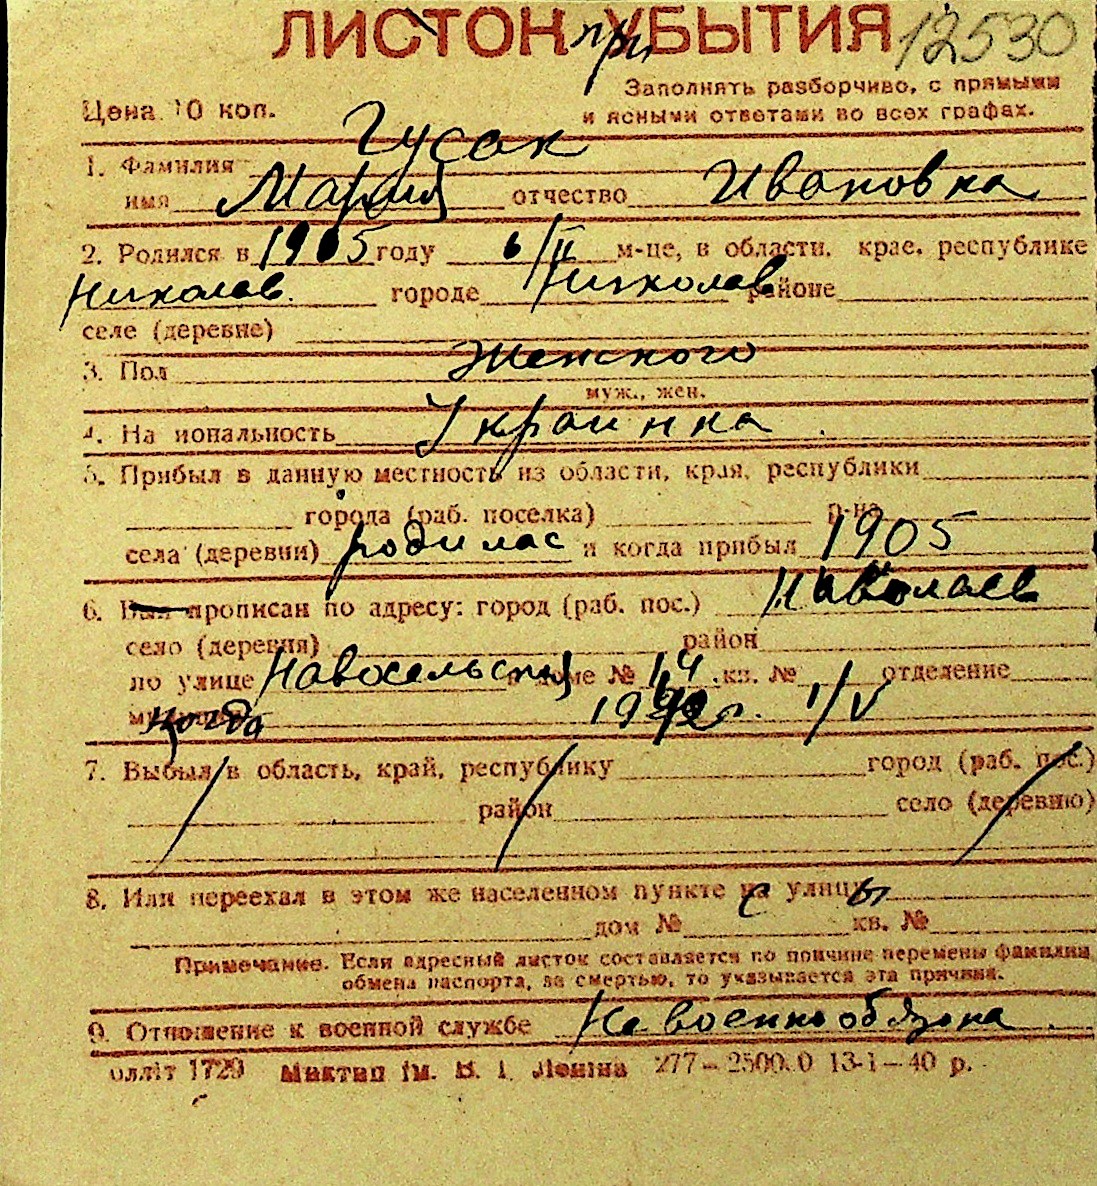 ЛИСТОК при УБЫТИЯ 12530
Заполнять разборчиво, с прямыми
Цена 10 коп. и ясными ответами во всех графах.
1. Фамилия Гусак
имя Мария отчество Ивановна
2. Родился в 1905 году 6/II м-це, в области, крае, республике
Николаев. городе Николаев районе
селе (деревне)
3. Пол Женского
муж., жен.
4. На иональность Украинка
5. Прибыл в данную местность из области, края, республики
города (раб. поселка) р-на
села (деревни) родилас и когда прибыл 1905
6. Был прописан по адресу: город (раб. пос.) Николаев
село (деревня) район
по улице Новосельская в доме № 14 кв. № отделение
когда 1/V
7. Выбыл в область, край, республику город (раб. пос.)
район село (деревню)
8. Или переехал в этом же населенном пункте с улицы
дом № кв. №
Примечание. Если адресный листок составляется по причине перемены фамилии,
обмена паспорта, за смертью, то указывается эта причина.
9. Отношение к военной службе Не военнообязана
олліт 1729 Миктип ім. В. І. Леніна 277—2500.0 13-1—40 р.